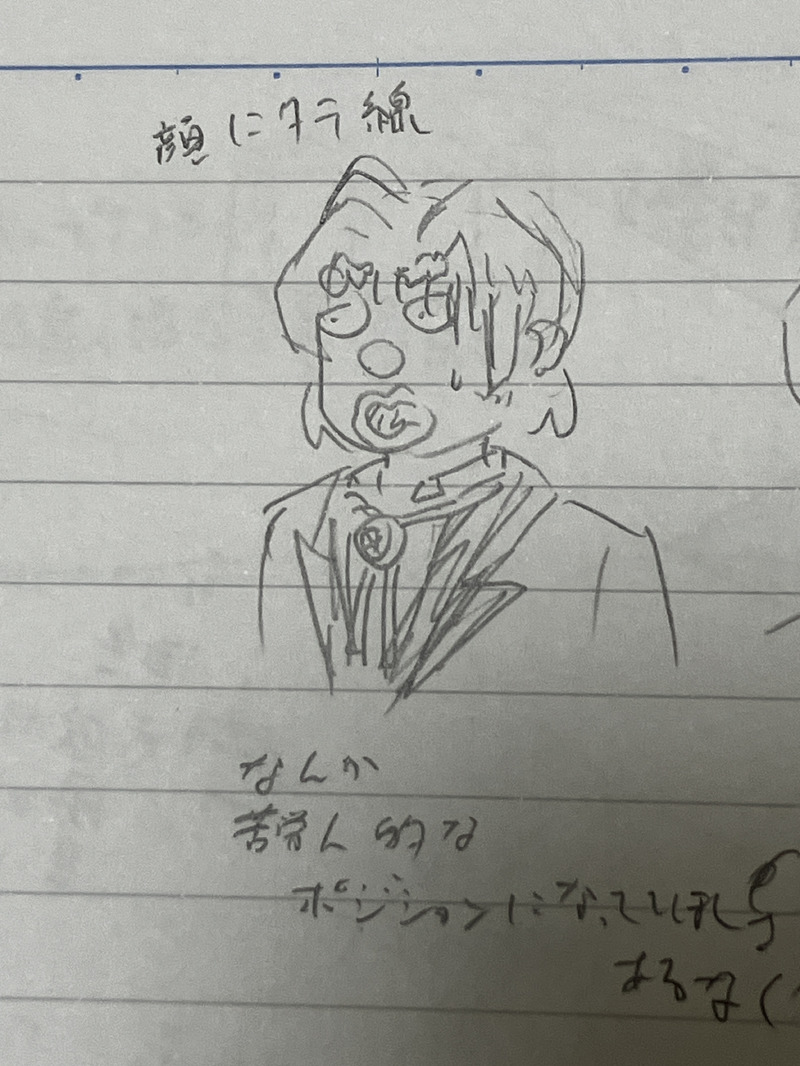 顔にタテ線
なんか
苦労人的な
ポジションになっていほし
まるな(